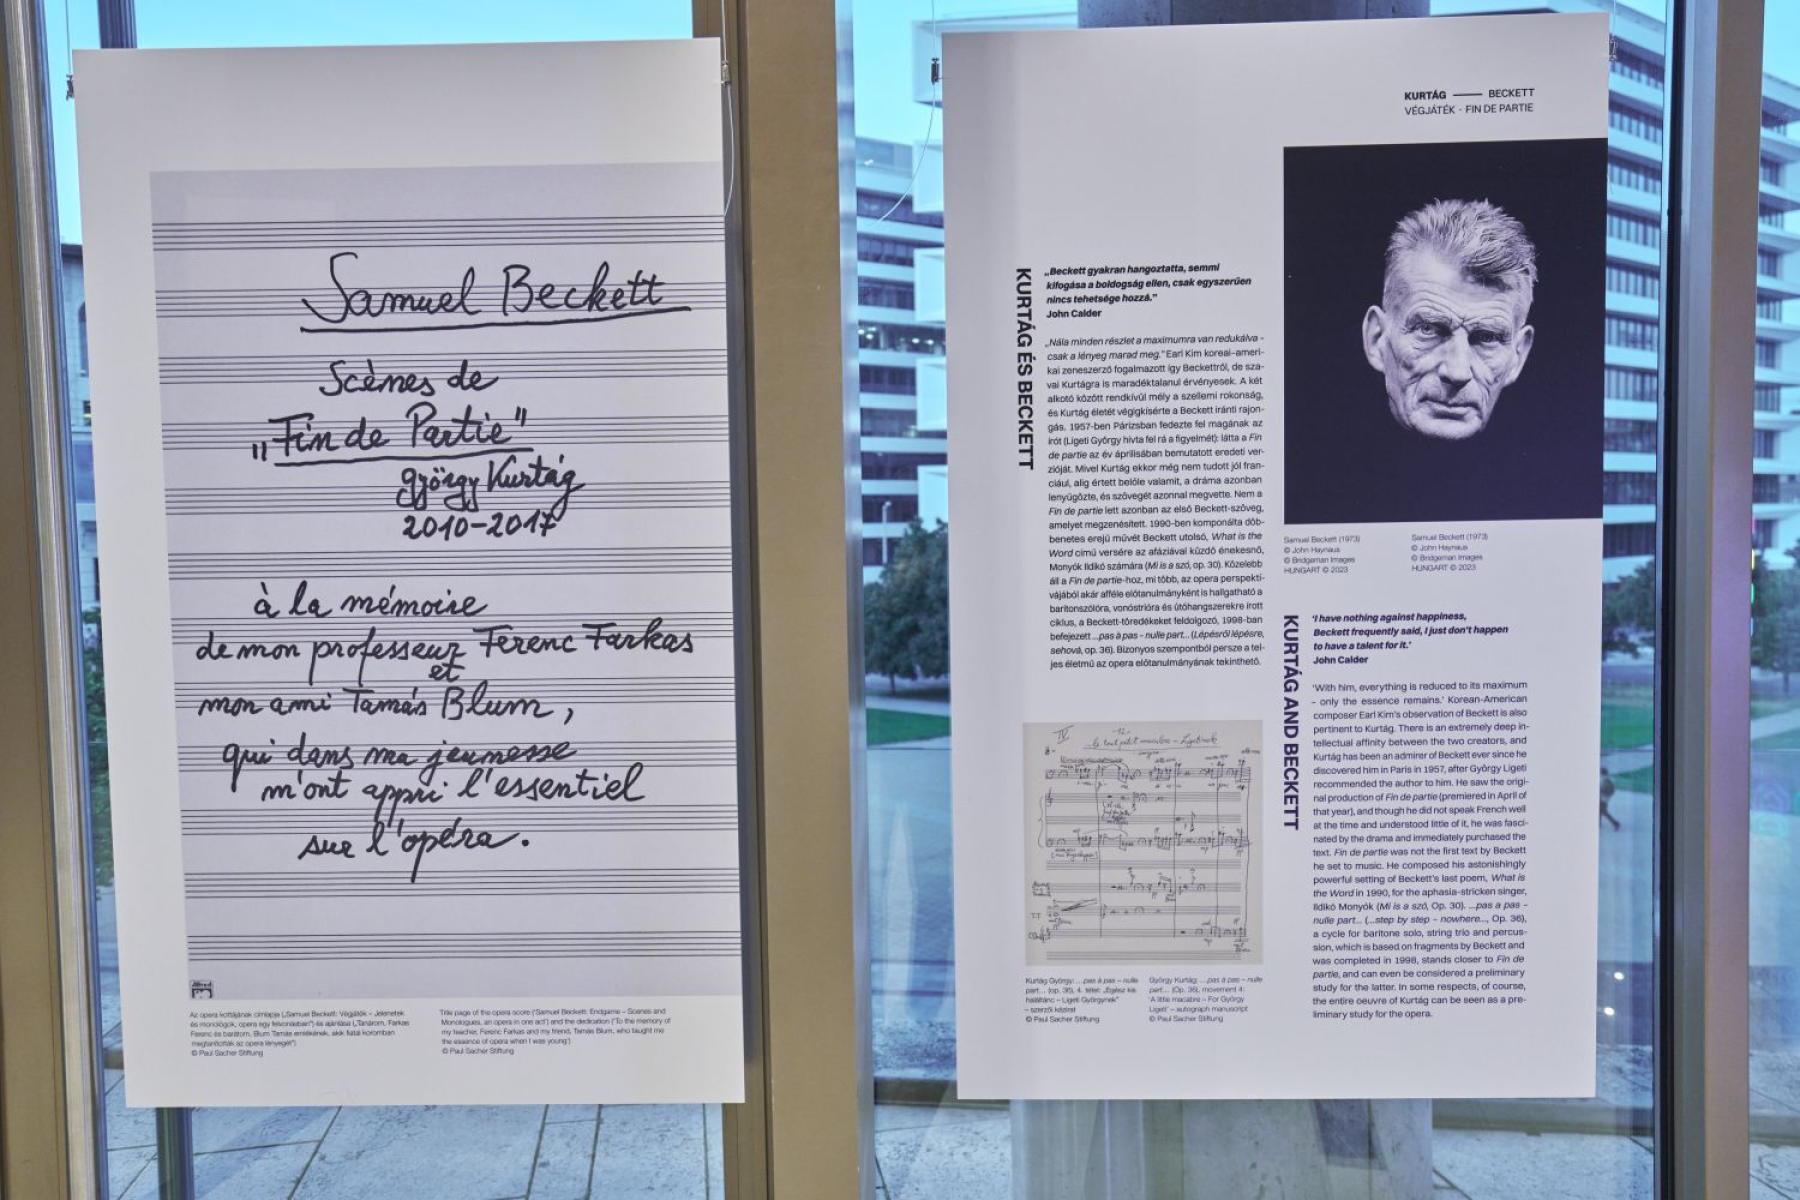 Samuel Beckett
Scènes de
„Fin de Partie"
György Kurtág
2010-2017
à la mémoire
de mon professeur Ferenc Farkas
et
mon ami Tamás Blum,
qui dans ma jeunesse
m'ont appri l'essentiel
sur l'opéra.
Az opera kottájának címlapja („Samuel Beckett: Végjáték – Jelenetek
és monológok, opera egy felvonásban") és ajánlása („Tanárom, Farkas
Ferenc és barátom, Blum Tamás emlékének, akik fiatal koromban
megtanították az opera lényegét")
© Paul Sacher Stiftung
Title page of the opera score ('Samuel Beckett: Endgame – Scenes and
Monologues, an opera in one act') and the dedication ('To the memory of
my teacher, Ferenc Farkas and my friend, Tamás Blum, who taught me
the essence of opera when I was young')
© Paul Sacher Stiftung
KURTÁG — BECKETT
VÉGJÁTÉK - FIN DE PARTIE
KURTÁG ÉS BECKETT
„Beckett gyakran hangoztatta, semmi
kifogása a boldogság ellen, csak egyszerűen
nincs tehetsége hozzá."
John Calder
„Nála minden részlet a maximumra van redukálva –
csak a lényeg marad meg." Earl Kim koreai-ameri-
kai zeneszerző fogalmazott így Beckettről, de sza-
vai Kurtágra is maradéktalanul érvényesek. A két
alkotó között rendkívül mély a szellemi rokonság,
és Kurtág életét végigkísérte a Beckett iránti rajon-
gás. 1957-ben Párizsban fedezte fel magának az
írót (Ligeti György hívta fel rá a figyelmét): látta a Fin
de partie az év áprilisában bemutatott eredeti ver-
zióját. Mivel Kurtág ekkor még nem tudott jól fran-
ciául, alig értett belőle valamit, a dráma azonban
lenyűgözte, és szövegét azonnal megvette. Nem a
Fin de partie lett azonban az első Beckett-szöveg,
amelyet megzenésített. 1990-ben komponálta döb-
benetes erejű művét Beckett utolsó, What is the
Word című versére az afáziával küzdő énekesnő,
Monyók Ildikó számára (Mi is a szó, op. 30). Közelebb
áll a Fin de partie-hoz, mi több, az opera perspektí-
vájából akár afféle előtanulmányként is hallgatható a
baritonszólóra, vonóstrióra és ütőhangszerekre írott
ciklus, a Beckett-töredékeket feldolgozó, 1998-ban
befejezett ...pas à pas - nulle part... (Lépésről lépésre,
sehová, op. 36). Bizonyos szempontból persze a tel-
jes életmű az opera előtanulmányának tekinthető.
Kurtág György: ...pas à pas – nulle
part... (op. 36), 4. tétel: „Egész kis
haláltánc – Ligeti Györgynek"
– szerzői kézirat
© Paul Sacher Stiftung
György Kurtág: ...pas à pas – nulle
part... (Op. 36), movement 4:
'A little macabre – For György
Ligeti' – autograph manuscript
© Paul Sacher Stiftung
Samuel Beckett (1973)
© John Haynaus
© Bridgeman Images
HUNGART © 2023
Samuel Beckett (1973)
© John Haynaus
© Bridgeman Images
HUNGART © 2023
KURTÁG AND BECKETT
'I have nothing against happiness,
Beckett frequently said, I just don't happen
to have a talent for it.'
John Calder
'With him, everything is reduced to its maximum
– only the essence remains.' Korean-American
composer Earl Kim's observation of Beckett is also
pertinent to Kurtág. There is an extremely deep in-
tellectual affinity between the two creators, and
Kurtág has been an admirer of Beckett ever since he
discovered him in Paris in 1957, after György Ligeti
recommended the author to him. He saw the origi-
nal production of Fin de partie (premiered in April of
that year), and though he did not speak French well
at the time and understood little of it, he was fasci-
nated by the drama and immediately purchased the
text. Fin de partie was not the first text by Beckett
he set to music. He composed his astonishingly
powerful setting of Beckett's last poem, What is
the Word in 1990, for the aphasia-stricken singer,
Ildikó Monyók (Mi is a szó, Op. 30). ...pas a pas –
nulle part... (...step by step – nowhere..., Op. 36),
a cycle for baritone solo, string trio and percus-
sion, which is based on fragments by Beckett and
was completed in 1998, stands closer to Fin de
partie, and can even be considered a preliminary
study for the latter. In some respects, of course,
the entire oeuvre of Kurtág can be seen as a pre-
liminary study for the opera.